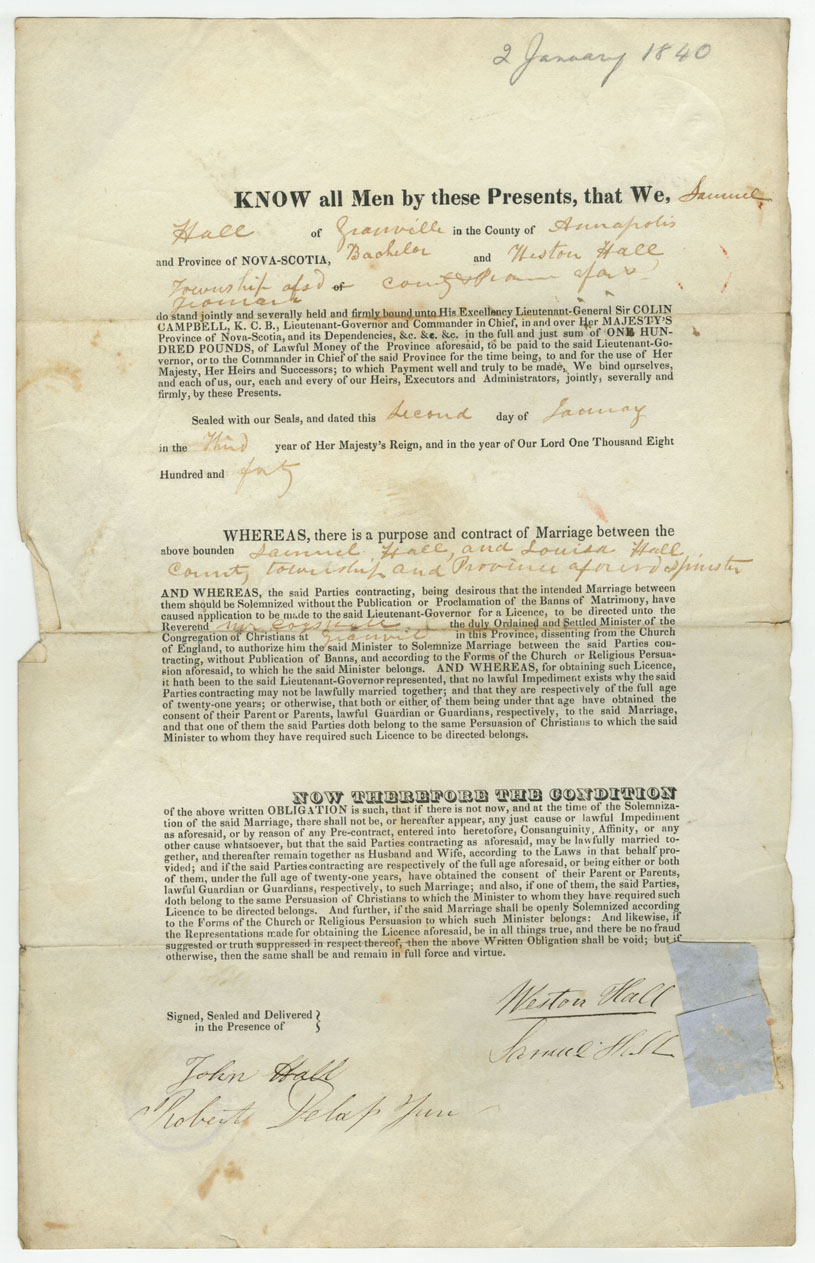 2 January 1840
KNOW all Men by these Presents, that We, Samuel
Hall of Granville in the County of Annapolis
and Province of NOVA-SCOTIA, Bachelor and Weston Hall
Township afsd of County &
do stand jointly and severally held and firmly bound unto His Excellency Lieutenant-General Sir COLIN
CAMPBELL, K. C. B., Lieutenant-Governor and Commander in Chief, in and over Her MAJESTY'S
Province of Nova-Scotia, and its Dependencies, &c. &c. &c. in the full and just sum of ONE HUN-
DRED POUNDS, of Lawful Money of the Province aforesaid, to be paid to the said Lieutenant-Go-
vernor, or to the Commander in Chief of the said Province for the time being, to and for the use of Her
Majesty, Her Heirs and Successors; to which Payment well and truly to be made, We bind ourselves,
and each of us, our, each and every of our Heirs, Executors and Administrators, jointly, severally and
firmly, by these Presents.
Sealed with our Seals, and dated this Second day of January
in the Third year of Her Majesty's Reign, and in the year of Our Lord One Thousand Eight
Hundred and forty
WHEREAS, there is a purpose and contract of Marriage between the
above bounden Samuel Hall, and Louisa Hall
County, township and Province aforesd Spinster
AND WHEREAS, the said Parties contracting, being desirous that the intended Marriage between
them should be Solemnized without the Publication or Proclamation of the Banns of Matrimony, have
caused application to be made to the said Lieutenant-Governor for a Licence, to be directed unto the
Reverend the duly Ordained and Settled Minister of the
Congregation of Christians at Granvil in this Province, dissenting from the Church
of England, to authorize him the said Minister to Solemnize Marriage between the said Parties con-
tracting, without Publication of Banns, and according to the Forms of the Church or Religious Persua-
sion aforesaid, to which he the said Minister belongs. AND WHEREAS, for obtaining such Licence,
it hath been to the said Lieutenant-Governor represented, that no lawful Impediment exists why the said
Parties contracting may not be lawfully married together; and that they are respectively of the full age
of twenty-one years; or otherwise, that both or either of them being under that age have obtained the
consent of their Parent or Parents, lawful Guardian or Guardians, respectively, to the said Marriage,
and that one of them the said Parties doth belong to the same Persuasion of Christians to which the said
Minister to whom they have required such Licence to be directed belongs.
NOW THEREFORE THE CONDITION
of the above written OBLIGATION is such, that if there is not now, and at the time of the Solemniza-
tion of the said Marriage, there shall not be, or hereafter appear, any just cause or lawful Impediment
as aforesaid, or by reason of any Pre-contract, entered into heretofore, Consanguinity, Affinity, or any
other cause whatsoever, but that the said Parties contracting as aforesaid, may be lawfully married to-
gether, and thereafter remain together as Husband and Wife, according to the Laws in that behalf pro-
vided; and if the said Parties contracting are respectively of the full age aforesaid, or being either or both
of them, under the full age of twenty-one years, have obtained the consent of their Parent or Parents,
lawful Guardian or Guardians, respectively, to such Marriage; and also, if one of them, the said Parties,
doth belong to the same Persuasion of Christians to which the Minister to whom they have required such
Licence to be directed belongs. And further, if the said Marriage shall be openly Solemnized according
to the Forms of the Church or Religious Persuasion to which such Minister belongs: And likewise, if
the Representations made for obtaining the Licence aforesaid, be in all things true, and there be no fraud
suggested or truth suppressed in respect thereof, then the above Written Obligation shall be void; but if
otherwise, then the same shall be and remain in full force and virtue.
Weston Hall
Signed, Sealed and Delivered
in the Presence of
Samuel Hall
John Hall
Robert Delap Jun